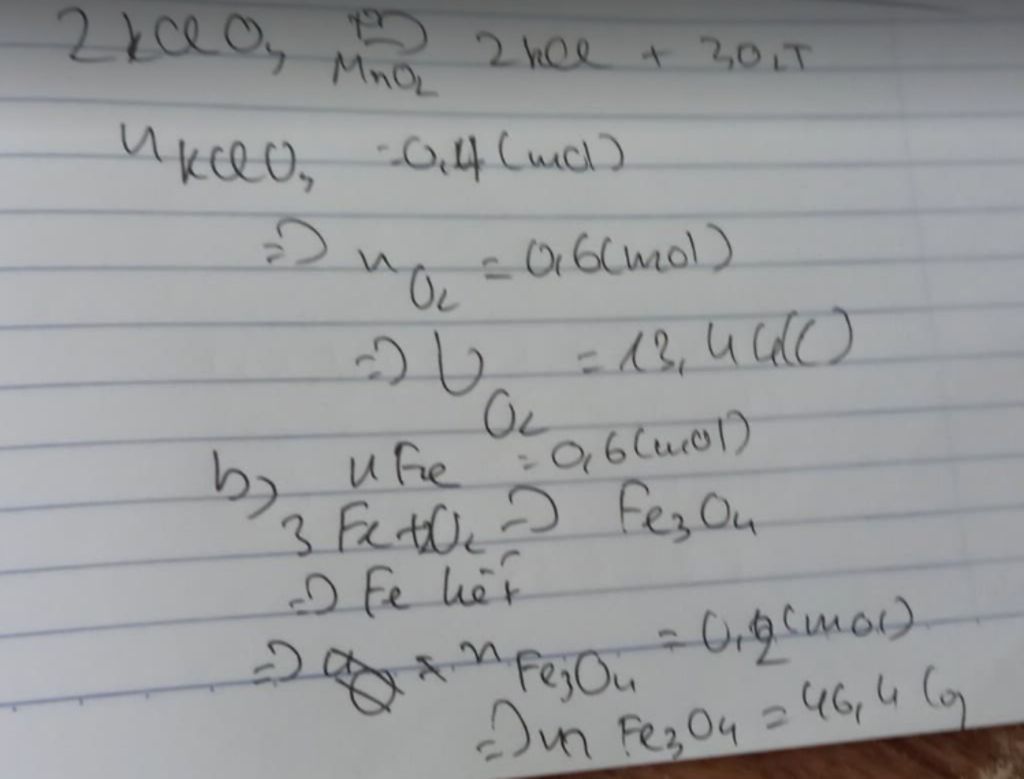 2KClO3 t° MnO2 2KCl + 3O2↑
n KClO3 = 0,4 (mol)
=> n O2 = 0,6 (mol)
=> V O2 = 13,44 (l)
b) n Fe = 0,6 (mol)
3Fe + 2O2 => Fe3O4
=> Fe hết
=> n Fe3O4 = 0,2 (mol)
=> m Fe3O4 = 46,4 (g